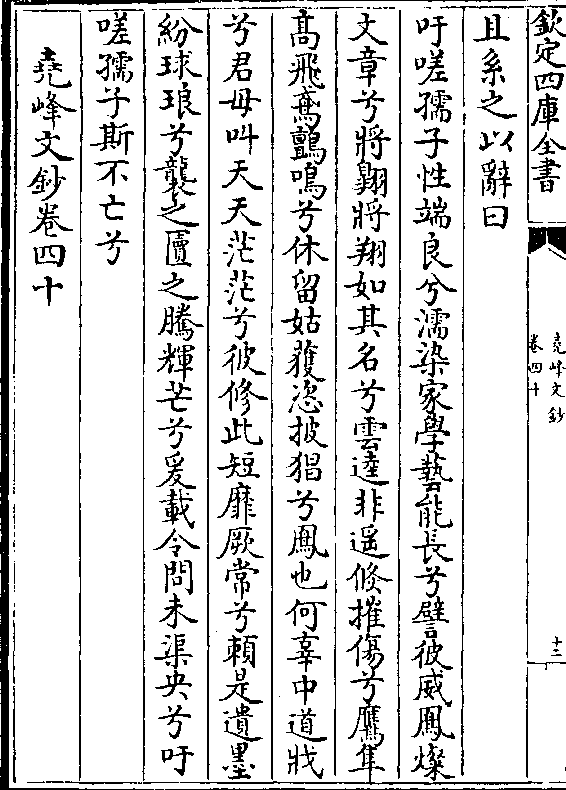 欽定四庫全書
堯峰文鈔
卷四十
十三
且系之以辭曰
吁嗟孺子性端良兮濡染家學藝能長兮譬彼威鳳燦
文章兮將翺將翔如其名兮雲逵非遥倐摧傷兮鷹隼
髙飛鳶鸇鳴兮休留姑獲恣披猖兮鳳也何辜中道戕
兮君母叫天天茫茫兮彼修此短靡厥常兮頼是遺墨
紛球琅兮襲之匵之騰輝芒兮爰載令問未渠央兮吁
嗟孺子斯不亡兮
堯峰文鈔卷四十